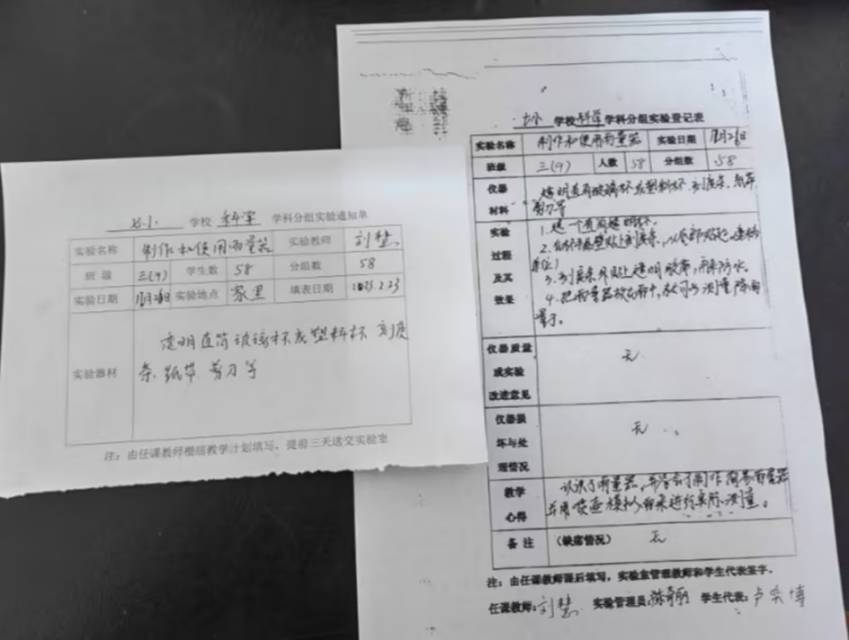 学校 科学 学科分组实验通知单
实验名称 制作和使用雨量器 实验教师 刘慧
班级 三(9) 学生数 58 分组数 58
实验日期 实验地点 家里 填表日期
透明直筒玻璃杯或塑料杯 刻度
实验器材
条 纸笔 剪刀等
注：由任课教师根据教学计划填写，提前三天送交实验室
学校 科学 学科分组实验登记表
实验名称 制作和使用雨量器 实验日期
班级 三(9) 人数 58 分组数 58
仪器
材料
透明直筒玻璃杯或塑料杯 刻度条
剪刀等
实验
过程
及其
效果
1. 选一个直筒透明杯。
3. 刻度条外贴上透明胶带，用来防水。
4. 把雨量器放在雨中，就可以测量降雨
量了。
仪器质量
或实验
改进意见
无
仪器损
坏与处
理情况
无
教学
心得
认识了雨量器，并学会了制作简易雨量器
备注 （缺席情况） 无
注：由任课教师课后填写，实验室管理教师和学生代表签字。
任课教师：刘慧 实验管理员： 学生代表：